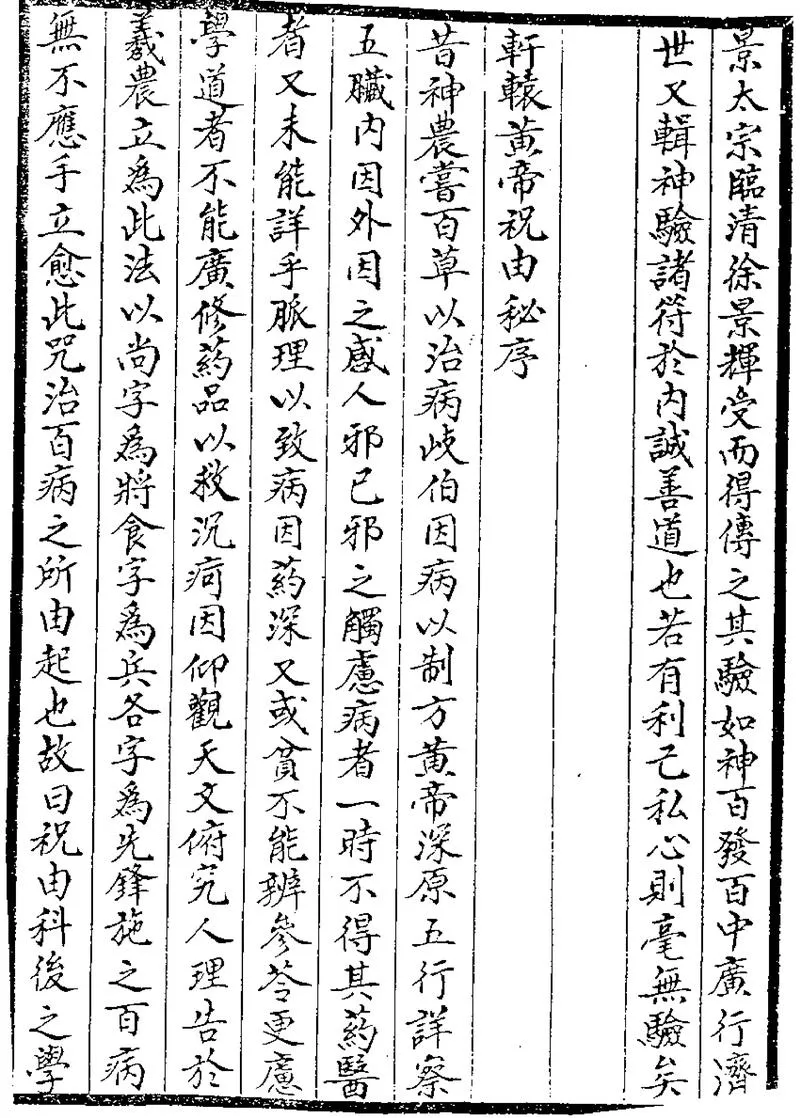 景太宗臨清徐景輝受而得傳之其驗如神百發百中廣行濟
世又輯神驗諸符於内誠善道也若有利己私心則毫無驗矣
軒轅黃帝祝由秘序
昔神農嘗百草以治病歧伯因病以制方黃帝深原五行詳察
五臟内因外因之感人邪已邪之觸慮病者一時不得其藥醫
者又未能詳乎脈理以致病因藥深又或貧不能辨參苓更慮
學道者不能廣修藥品以救沉疴因仰觀天文俯究人理告於
羲農立爲此法以尚字爲將食字爲兵各字爲先鋒施之百病
無不應手立愈此咒治百病之所由起也故曰祝由科後之學